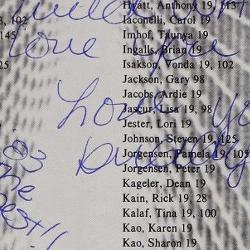 Hyatt, Anthony 19, 113
Iaconelli, Carol 19
Imhof, Taunya 19
love
Ingalls, Brian 19
Isakson, Vonda 19, 102
Jackson, Gary 98
Jacobs, Ardie 19
Love
Jascur, Lisa 19, 98
Jester, Lori 19
Johnson, Steven 19, 125
83
Jorgensen, Pamela 19,
Jorgensen, Peter 19
Kageler, Dean 19
Kain, Rick 19, 28
Kalaf, Tina 19, 100
Kao, Karen 19
Kao, Sharon 19